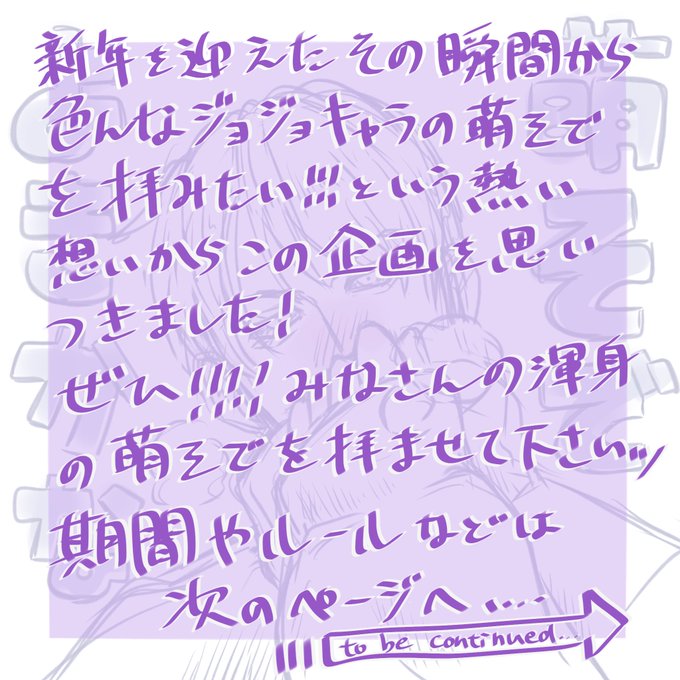 新年を迎えたその瞬間から
色んなジョジョキャラの萌えそで
を拝みたい!!!という熱い
想いからこの企画を思い
つきました!
ぜひ!!!! みなさんの渾身
の萌えそでを拝ませて下さいッ
期間やルールなどは
次のページへ....
to be continued...